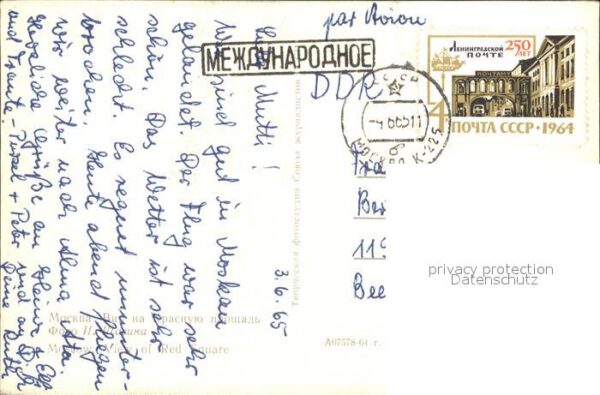 par Avion
МЕЖДУНАРОДНОЕ
DDR
ЛЕНИНГРАДСКОЙ ПОЧТЕ
250 ЛЕТ
ПОЧТАМТ
4
ПОЧТА СССР • 1964
СССР
МОСКВА К-225
3.6.65
Liebe Mutti!
Wir sind gut in Moskau
gelandet. Der Flug war sehr
schön. Das Wetter ist sehr
schlecht. Es regnet ununter-
brochen. Heute abend fliegen
wir weiter nach Alma Ata.
Herzliche Grüße an Heinz &
und Tante, Pursel & Peter und an Dich
Deine Ruth
Москва. Вид на Красную площадь
Фото
Moscow. View of Red Square
Творческая фотостудия Союза журналистов
А07578-64 г.
Fra
Ber
119
Bee
privacy protection
Datenschutz